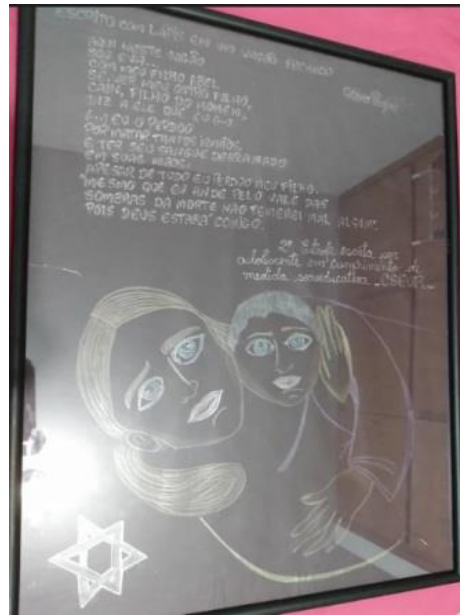 ESCRITO COM LÁPIS EM UM VAGÃO FECHADO
AQUI NESTE VAGÃO
SOU EVA...
COM MEU FILHO ABEL
SE VER MEU OUTRO FILHO,
CAIM, FILHO DO HOMEM,
DIZ A ELE QUE EU O...
EU O PERDOO
POR MATAR TANTOS
E TER SEU SANGUE DERRAMADO
EM SUAS MÃOS.
APESAR DE TUDO EU PERDOO MEU FILHO.
"MESMO QUE EU ANDE PELO VALE DAS
SOMBRAS DA MORTE NÃO TEMEREI MAL ALGUM"
POIS DEUS ESTARÁ COMIGO.
2ª Estrofe escrita por
adolescente em cumprimento de
medida socioeducativa